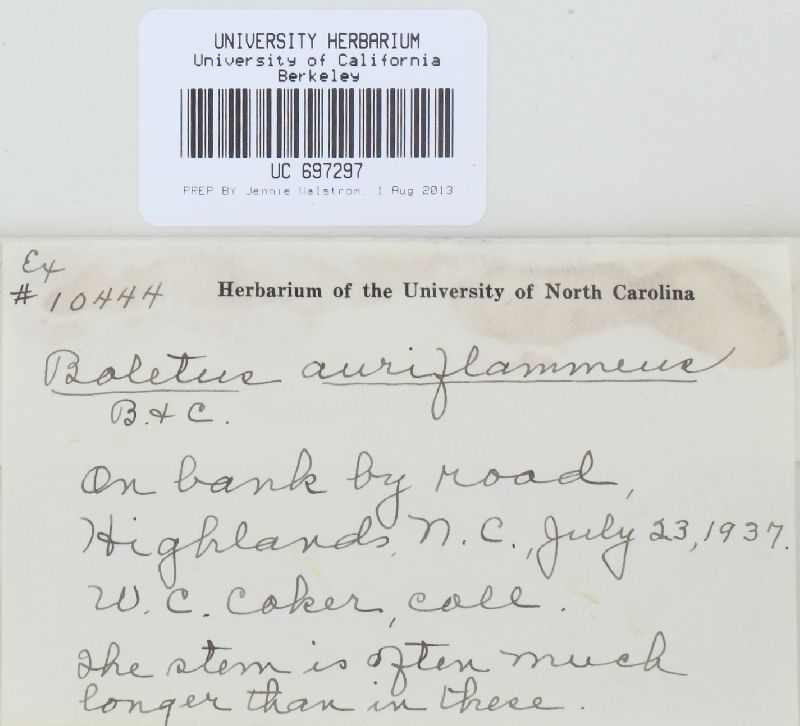 UNIVERSITY HERBARIUM
University of California
Berkeley
UC 697297
PREP BY Jennie Walstrom, 1 Aug 2013
Ex
# 10444
Herbarium of the University of North Carolina
Boletus auriflammeus
B. & C.
On bank by road,
Highlands, N. C., July 23, 1937.
W. C. Coker, coll.
The stem is often much
longer than in these.